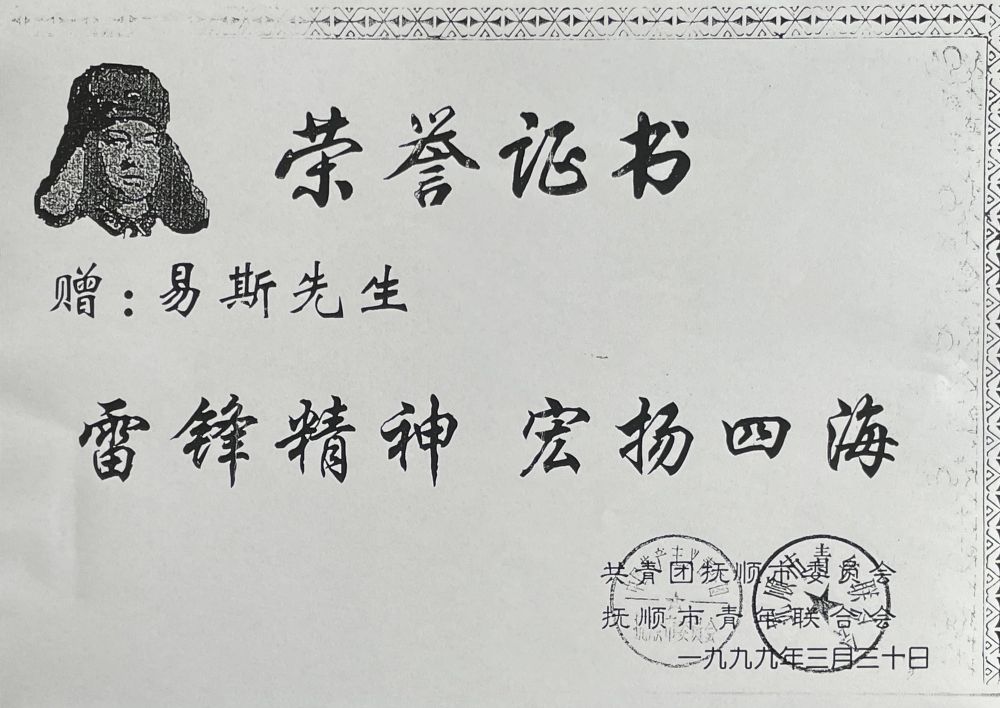 荣誉证书
赠：易斯先生
雷锋精神 宏扬四海
共青团抚顺市委员会
抚顺市青年联合会
一九九九年三月三十日